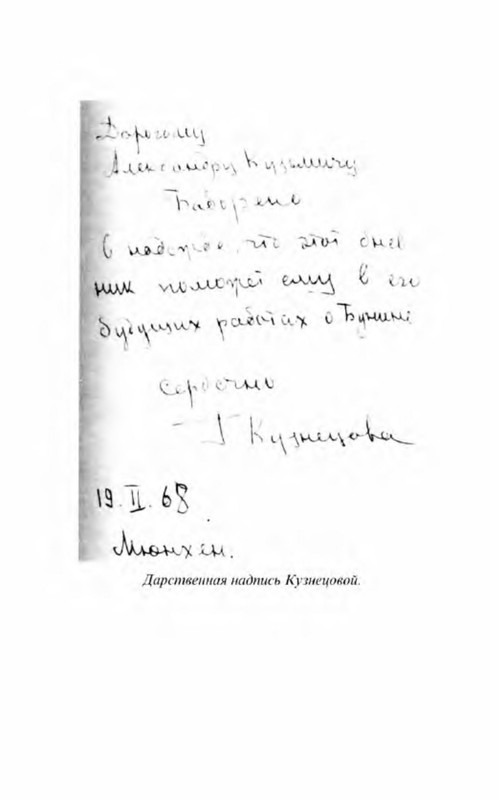 Дорогому
Александру Кузьмичу
Бабореко
в надежде, что этот днев
ник поможет ему в его
будущих работах о Бунине
Сердечно
Г Кузнецова
19.II.68
Мюнхен.
Дарственная надпись Кузнецовой.